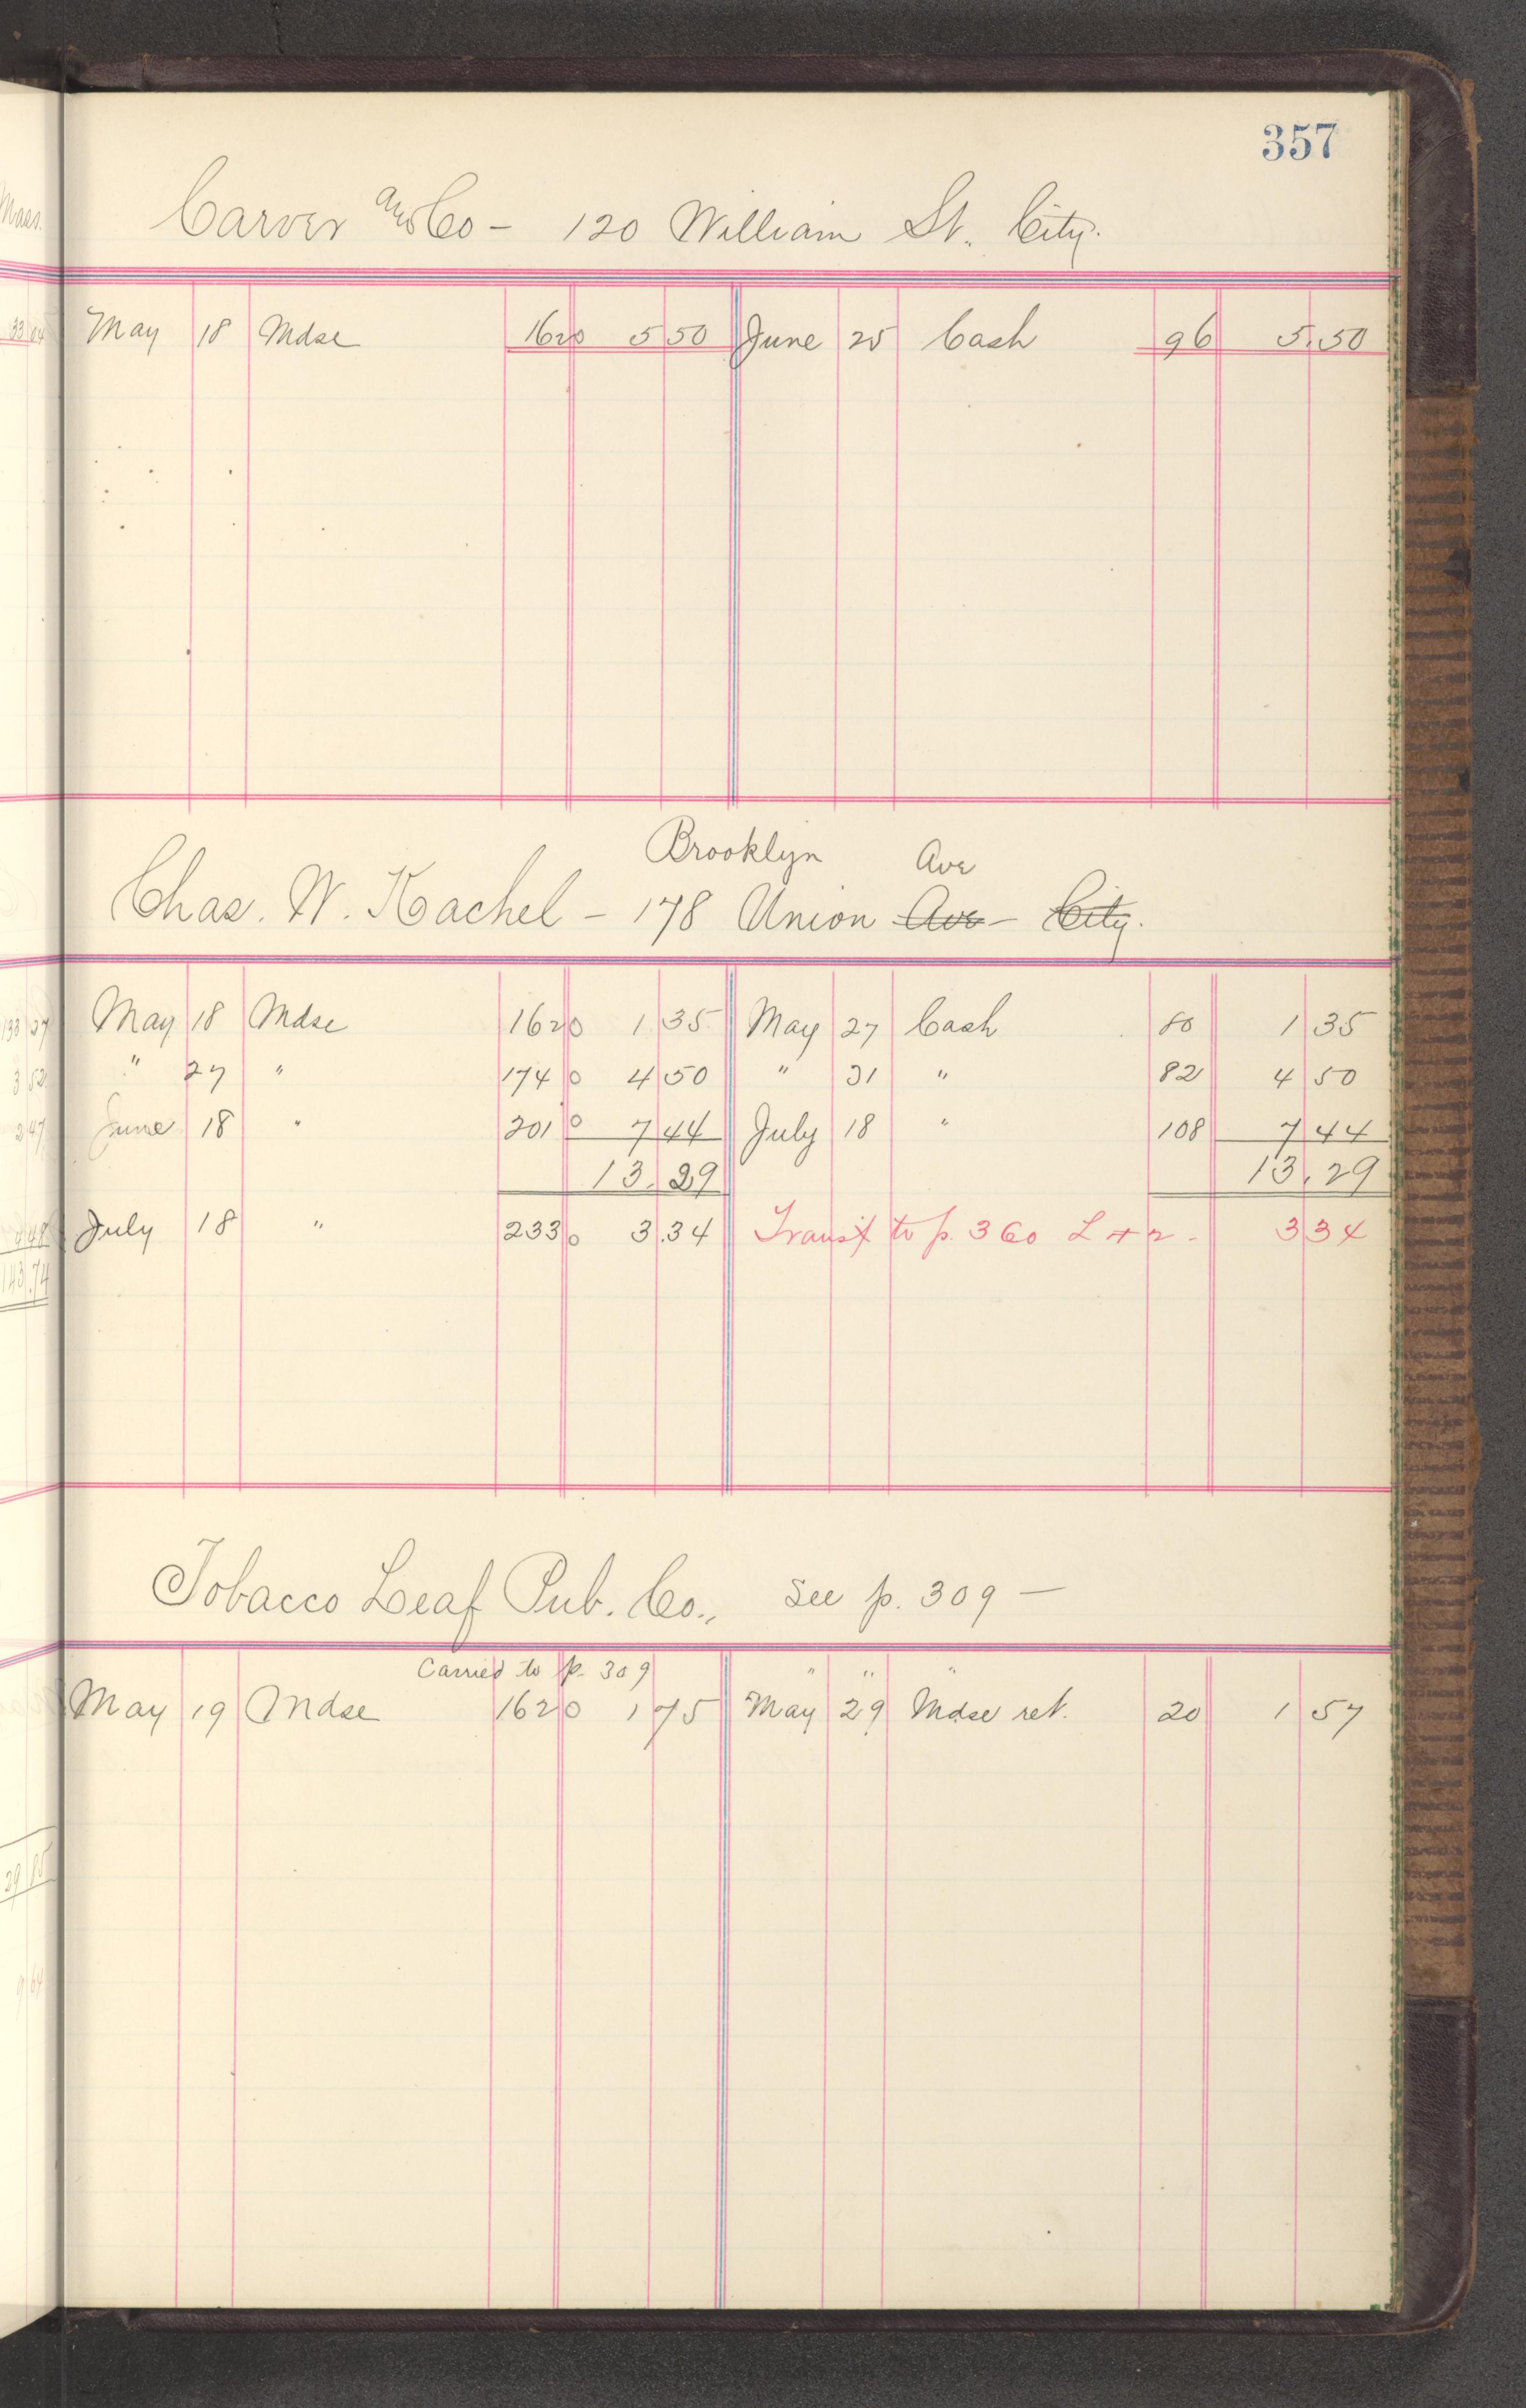 357
Carver and Co - 120 William St. City.
May 18 Mdse 162 0 5 50 June 25 Cash 96 5.50
Brooklyn Ave
Chas. W. Kachel - 178 Union Ave - City.
May 18 Mdse 162 0 1 35 May 27 Cash 80 1 35
" 27 " 174 0 4 50 " 31 " 82 4 50
June 18 " 201 0 7 44 July 18 " 108 7 44
13.29 13.29
July 18 " 233 0 3.34 Transf to p. 360 3 34
Tobacco Leaf Pub. Co., See p. 309 -
Carried to p. 309 " " "
May 19 Mdse 162 0 1 75 May 29 Mdse ret. 20 1 57